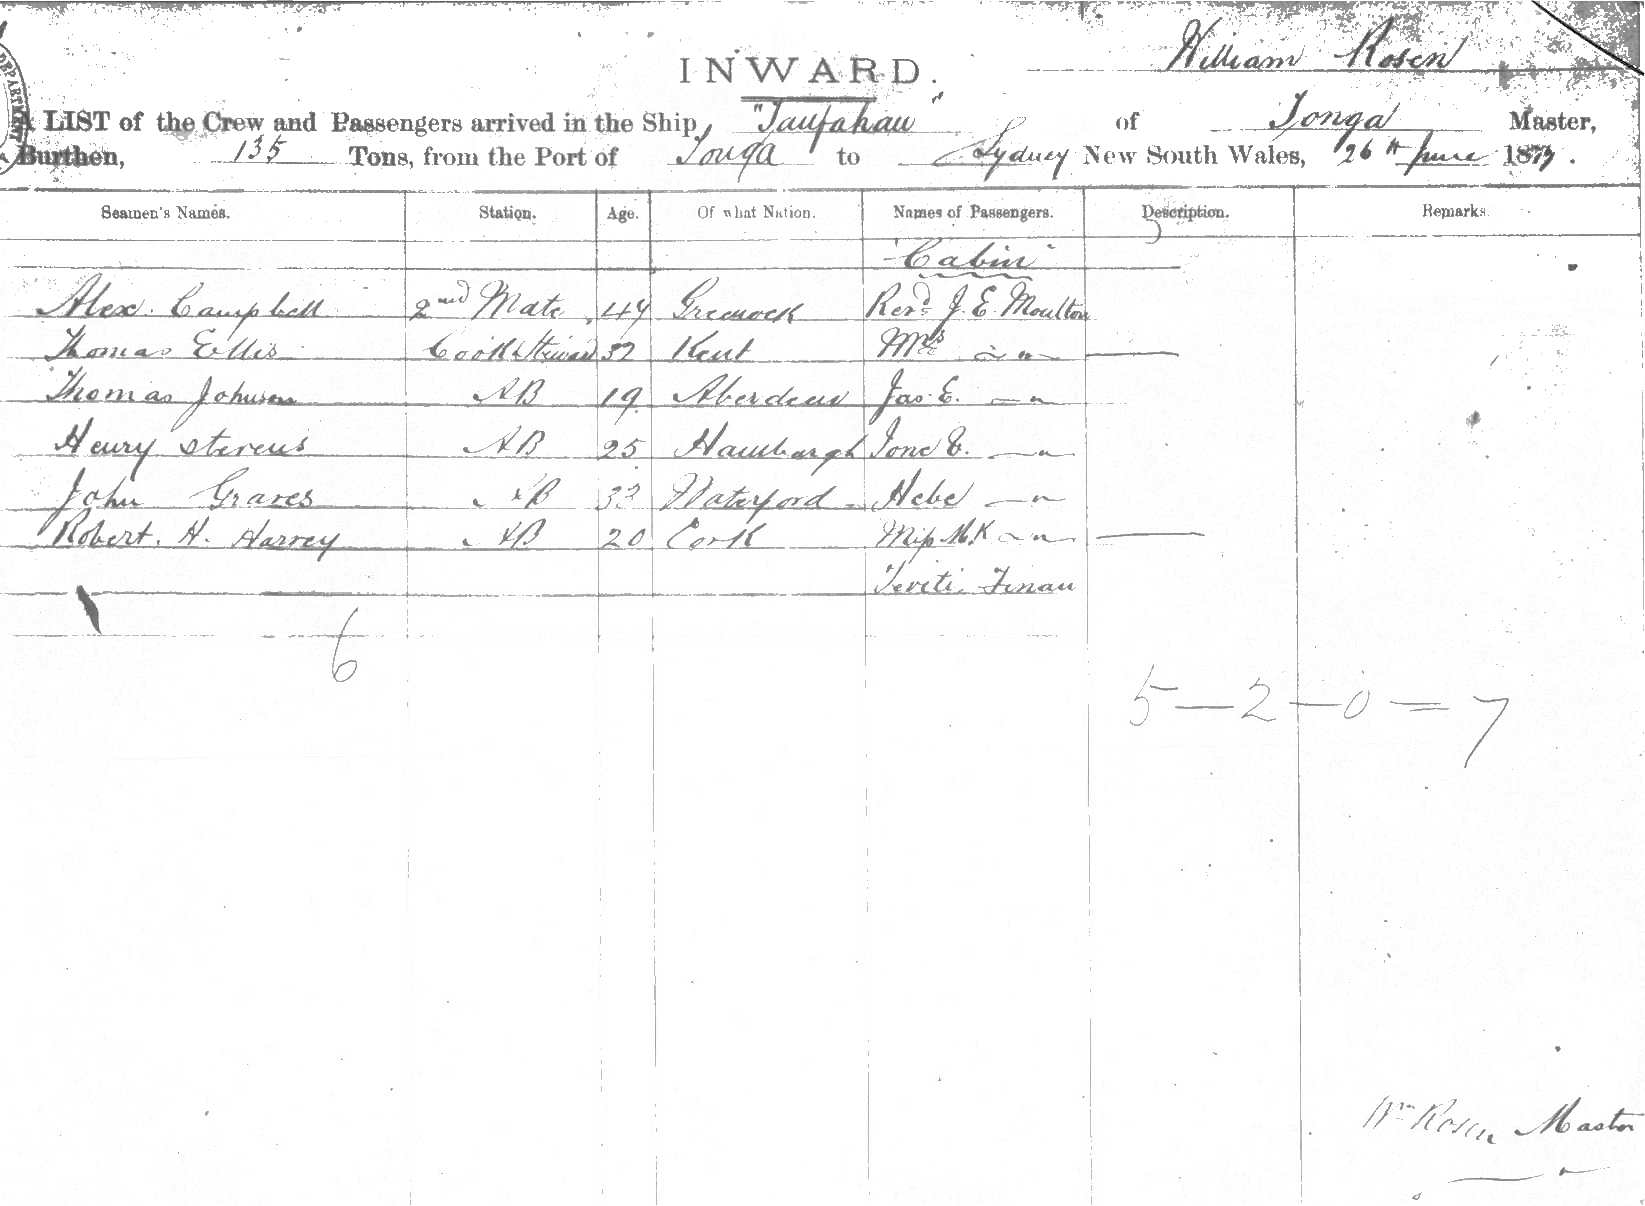 DEPARTMENT
William Rosen
INWARD.
A LIST of the Crew and Passengers arrived in the Ship, "Taufahau" of Tonga Master,
Burthen, 135 Tons, from the Port of Tonga to Sydney New South Wales, 26th June 1877.
Seamen's Names. Station. Age. Of what Nation. Names of Passengers. Description. Remarks.
"Cabin"
Alex. Campbell 2nd Mate Greenock Revd. J. E. Moulton
Thomas Ellis Cook & Steward 32 Kent Mrs — " —
Thomas Johnson AB 19 Aberdeen Jas. E. — " —
Henry Stevens AB 25 Hamburgh — " —
John Graves AB 33 Waterford Hebe — " —
Robert. H. Harvey AB 20 Cork Miss M.K — " —
Teviti Finau
6
5 — 2 — 0 = 7
Wm Rosen Master